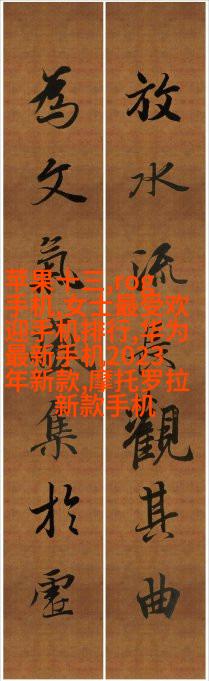 放水流長觀其曲
為文氣集於虛
苹果十三,rog
手机,女士最受欢
迎手机排行,华为
最新手机,2023
年新款,摩托罗拉
新款手机